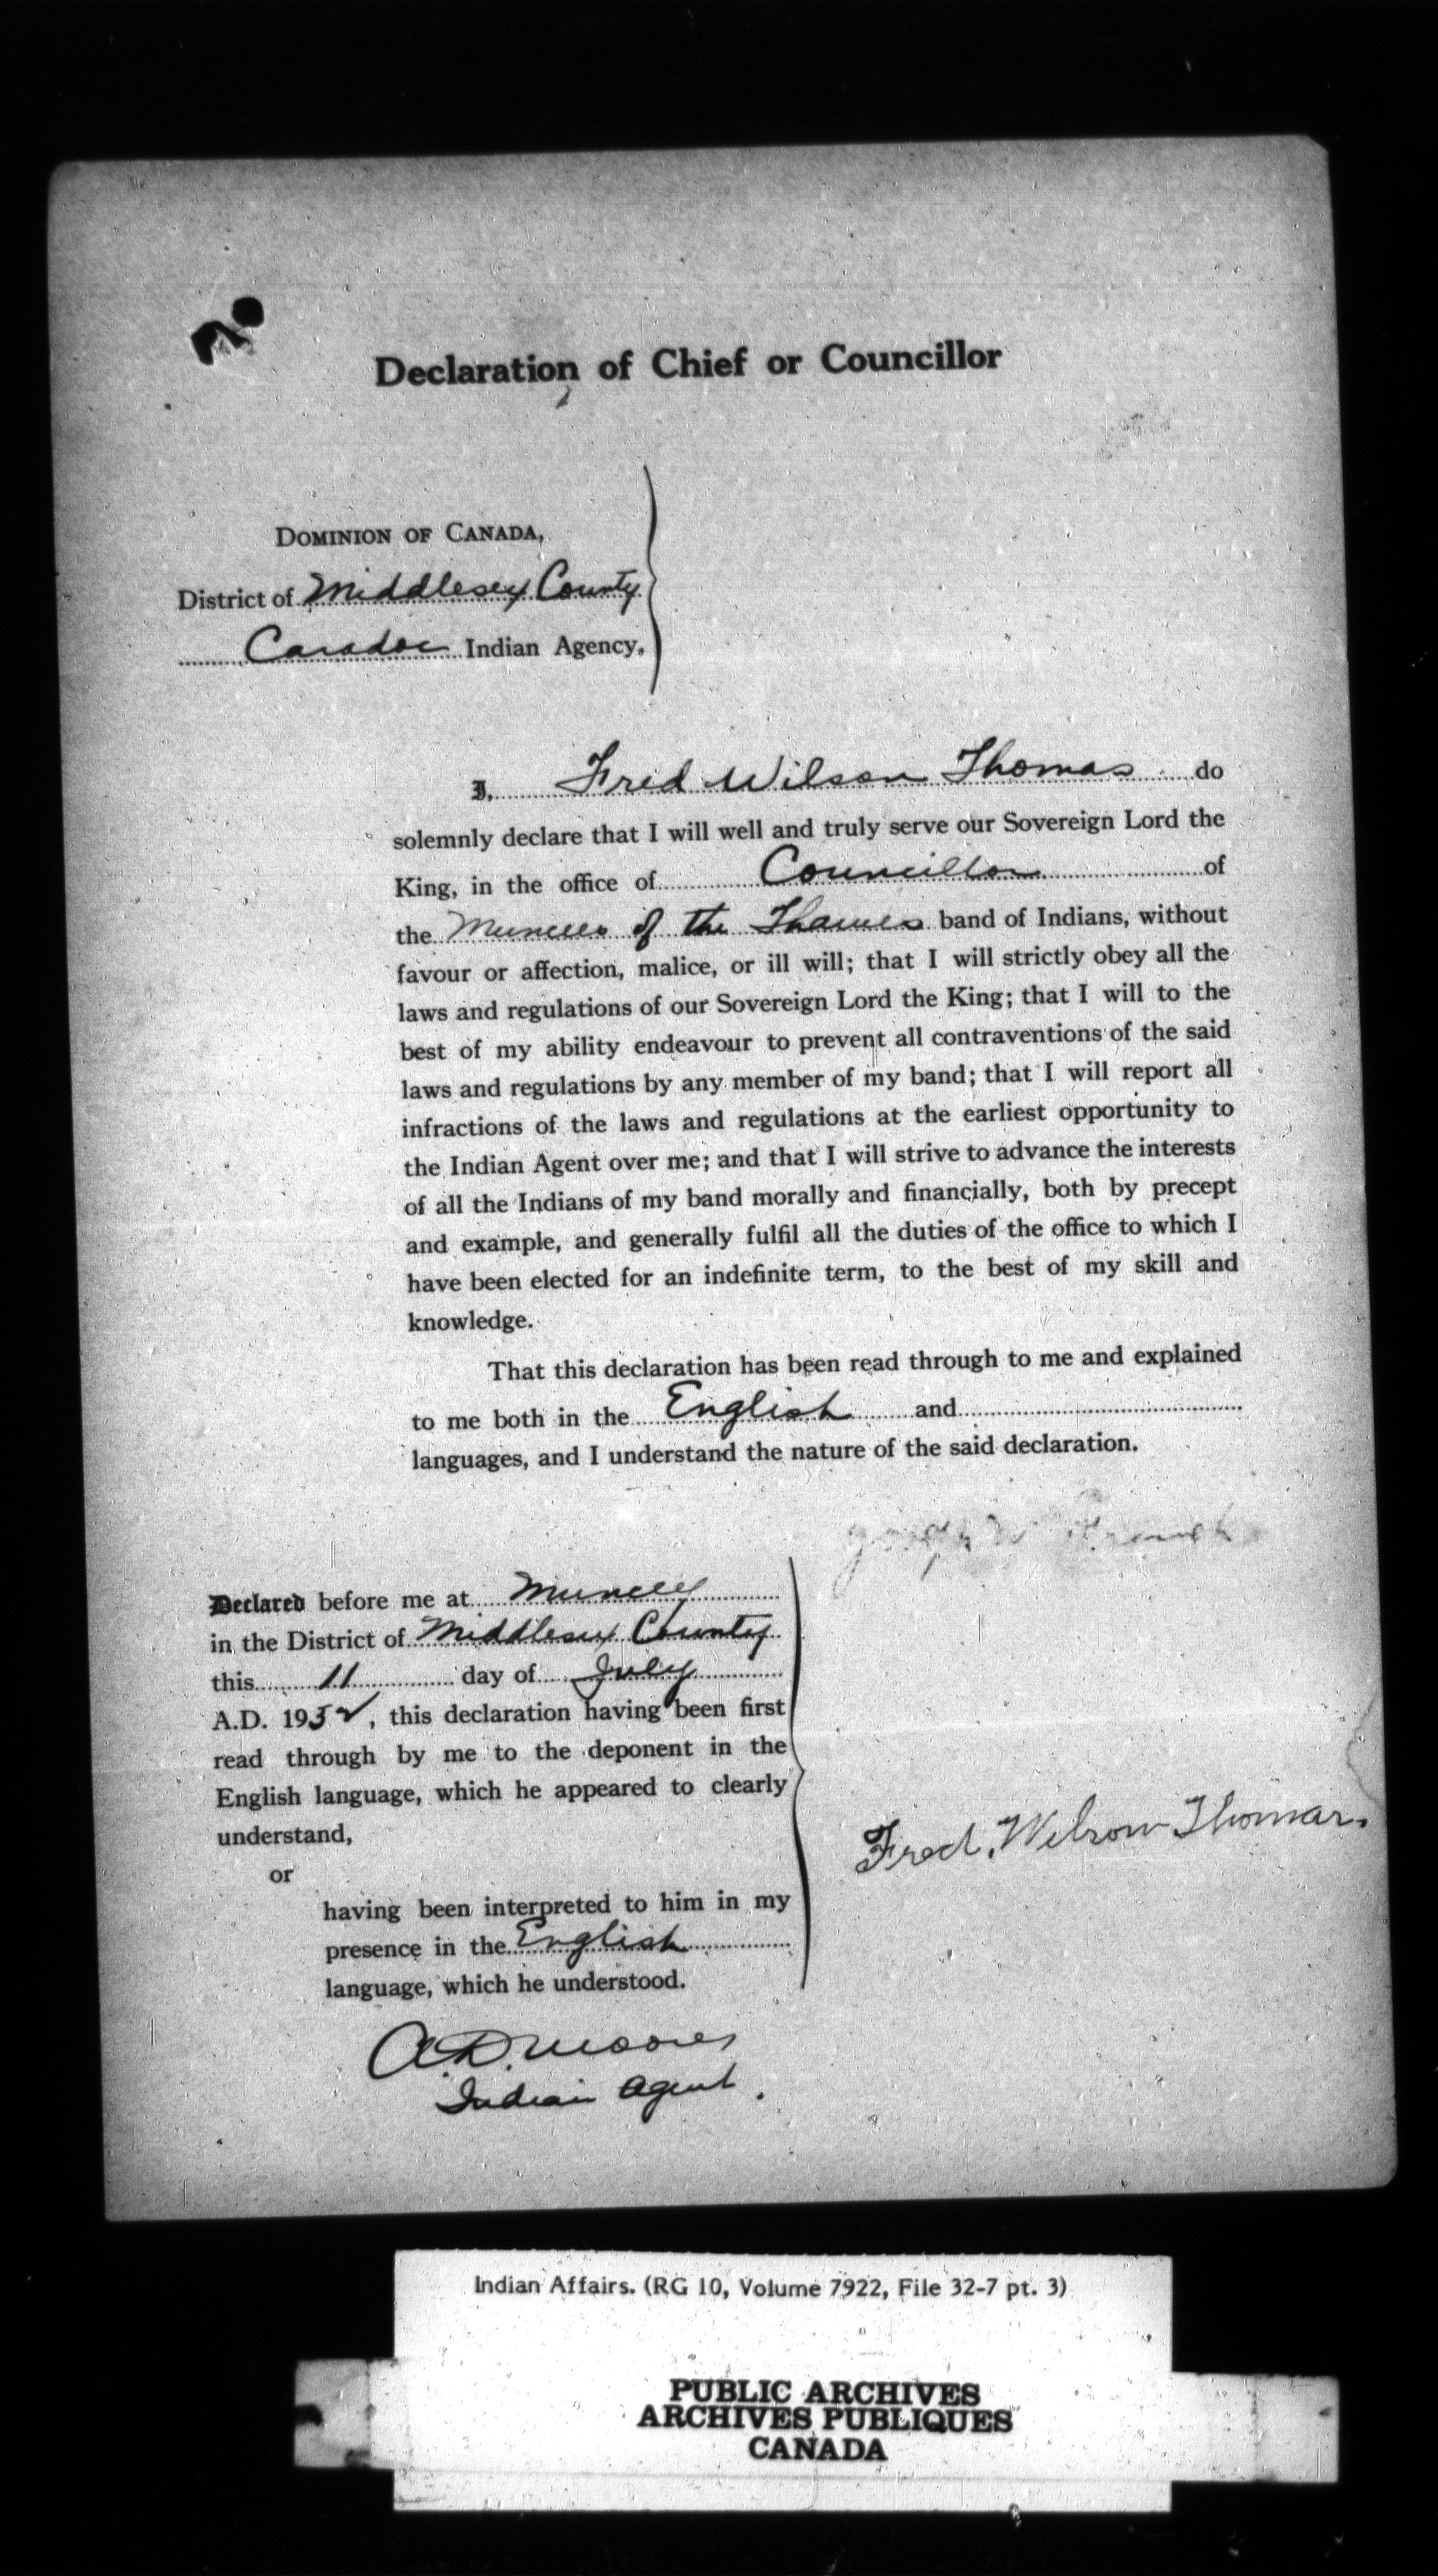 Declaration of Chief or Councillor
DOMINION OF CANADA,
District of Middlesex County
Caradoc Indian Agency,
I, Fred Wilson Thomas do
solemnly declare that I will well and truly serve our Sovereign Lord the
King, in the office of Councillor of
the Muncees of the Thames band of Indians, without
favour or affection, malice, or ill will; that I will strictly obey all the
laws and regulations of our Sovereign Lord the King; that I will to the
best of my ability endeavour to prevent all contraventions of the said
laws and regulations by any member of my band; that I will report all
infractions of the laws and regulations at the earliest opportunity to
the Indian Agent over me; and that I will strive to advance the interests
of all the Indians of my band morally and financially, both by precept
and example, and generally fulfil all the duties of the office to which I
have been elected for an indefinite term, to the best of my skill and
knowledge.
That this declaration has been read through to me and explained
to me both in the English and
languages, and I understand the nature of the said declaration.
Declared before me at Muncey
in the District of Middlesex County
this 11 day of July
A.D. 1932, this declaration having been first
read through by me to the deponent in the
English language, which he appeared to clearly
understand,
or
having been interpreted to him in my
presence in the English
language, which he understood.
Fred. Wilson Thomas.
A.D. Moore
Indian Agent.
Indian Affairs. (RG 10, Volume 7922, File 32-7 pt. 3)
PUBLIC ARCHIVES
ARCHIVES PUBLIQUES
CANADA